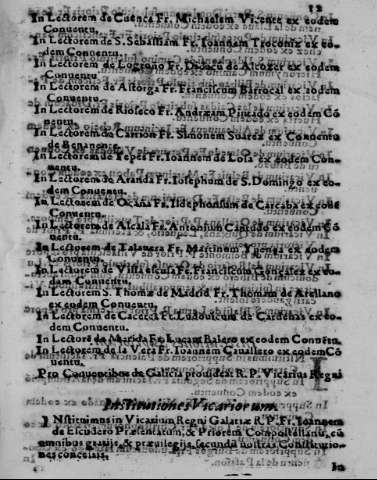 12
In Lectorem de Cuenca Fr. Michaelem Vicente ex eodem
Conuentu.
In Lectorem de S. Sebastiam Fr. Ioannem Troconiz ex eo-
dem Conuentu.
In Lectorem de Logroño Fr. Didacũ de Alcozer ex eodem
Conuentu.
In Lectorem de Astorga Fr. Franciscum Barrocal ex eodem
Conuentu.
In Lectorem de Rioseco Fr. Andræam Pintado ex eodem Cõ
uentu.
In Lectorem de Carrion Fr. Simonem Suarez ex Conuentu
de Benauente.
In Lectorem de Yepes Fr. Ioannem de Losa ex eodem Con-
uentu.
In Lectorem de Aranda Fr. Iosephum de S. Domingo ex eo-
dem Conuentu.
In Lectorem de Ocaña Fr. Ildephonsum de Carcaba ex eodē
Conuentu.
In Lectorem de Alcala Fr. Antonium Cantado ex eodem Cõ
uentu.
In Lectorem de Talauera Fr. Martinum Ybañez ex eodem
Conuentu.
In Lectorem de Villaescusa Fr. Franciscum Gonçalez ex eo-
dem Conuentu.
In Lectorem S. Thomæ de Madrid Fr. Thomam de Arellano
ex eodem Conuentu.
In Lectorem de Caceres Fr. Ludouicum de Cardenas ex eo-
dem Conuentu.
In Lectorē de Merida Fr. Lucam Balero ex eodem Conuētu.
In Lectorem de la Vera Fr. Ioannem Cauallero ex eodem Cõ
uentu.
Pro Conuentibus de Galicia prouideat R. P. Vicarius Regni
Institutiones Vicariorum.
INstituimus in Vicarium Regni Galatiæ R. P. Fr. Ioannem
de Escudero Præsentatum, & Priorem Compostellanũ, cũ
omnibus gratijs, & præuilegijs, secundũ nostras Constitutio-
nes concessis.
In